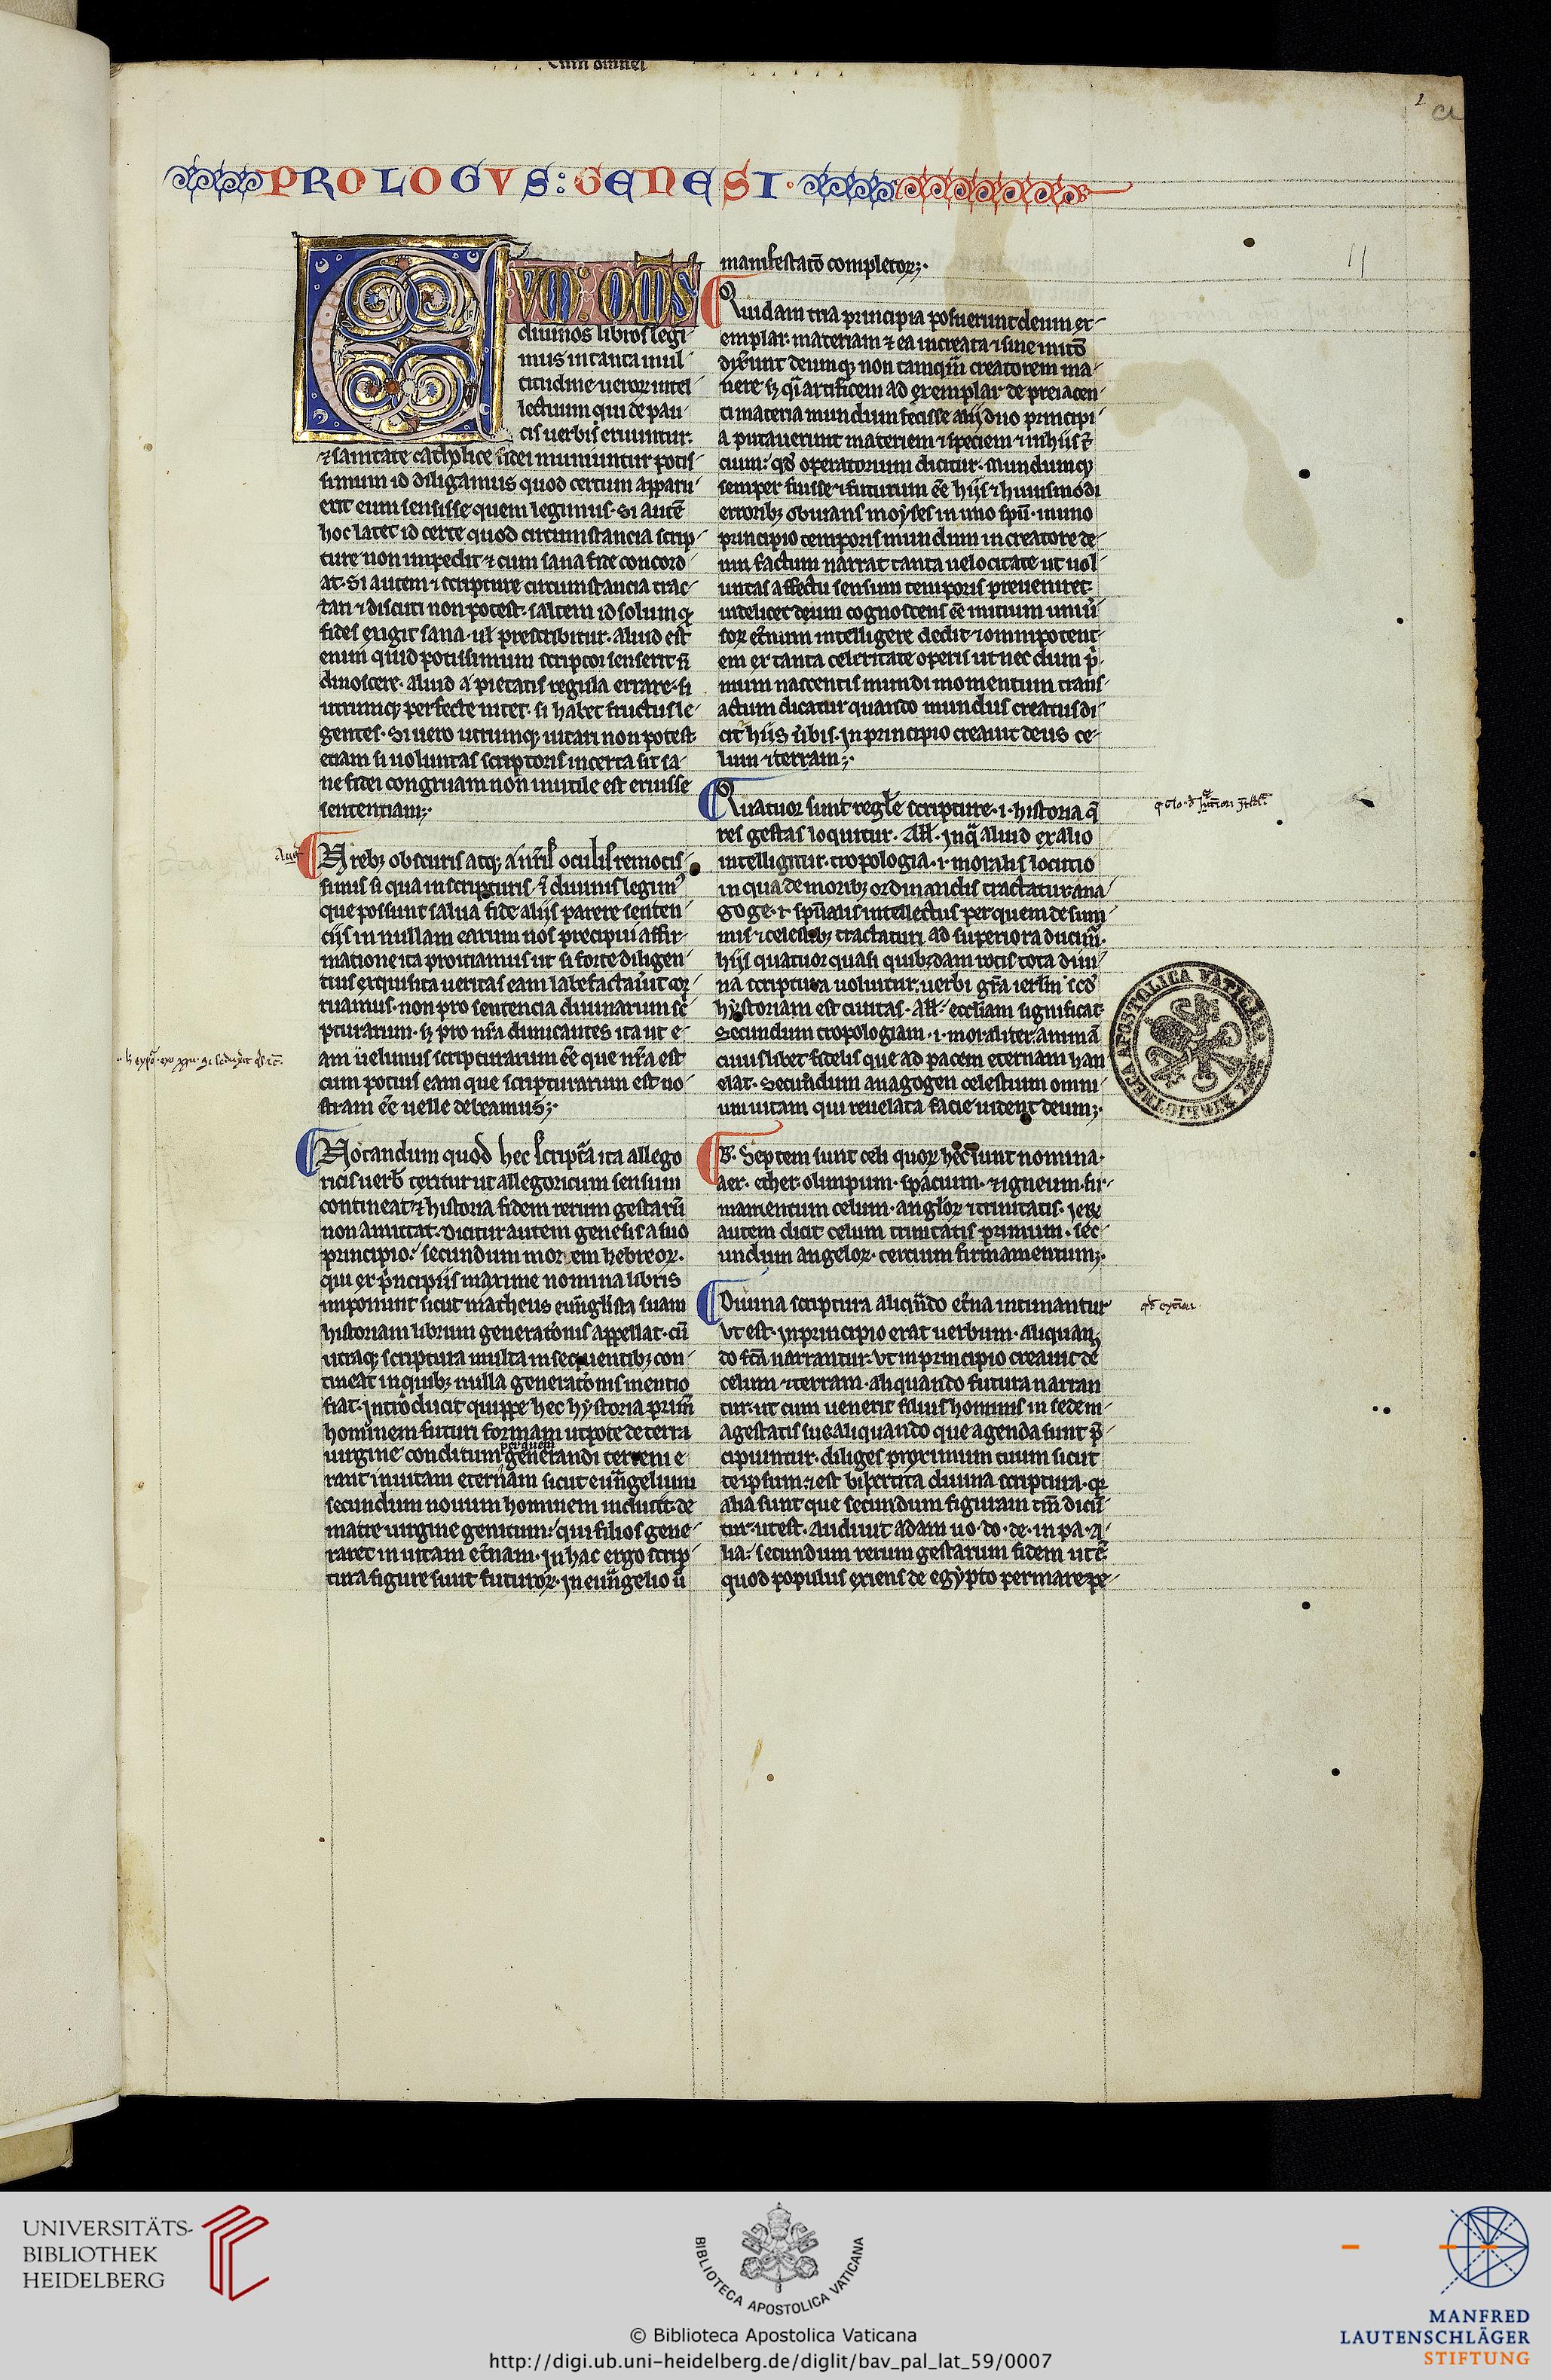 PROLOGVS: GENESI.
CVM: OM̅S
diuinos libros legi
mus in tanta mul
titudine ueroꝝ intel
lectuum qui de pau
cis uerbis eruuntur.
⁊ sanitate catholice fidei muniuntur potis
simum id diligamus quod certum apparu
erit eum sensisse quem legimus. Si aute̅
hoc latet id certe quod circumstancia scrip
ture non impedit ⁊ cum sana fide concord
at. Si autem ⁊ scripture circumstancia trac
tari ⁊ discuti non potest. saltem id solum qͦ
fides exigit sana. ul̓ prescribitur. Aliud est
enim quid potissimum scriptor senserit n̅
dinoscere. aliud a pietatis regula errare. si
utrumqꝫ perfecte uitet. si habet fructus le
gentes. Si uero utrumqꝫ uitari non potest
etiam si uoluntas scriptoris incerta sit sa
ne fidei congruam non inutile est eruisse
sententiam;.
Aug̅
A rebꝫ obscuris atqꝫ a nr̅is oculis remotis
simis si qua in scripturis ⁊ diuinis legimꝰ
que possunt salua fide aliis parere senten
ciis in nullam earum nos precipiti affir
matione ita proiciamus ut si forte diligen
tius exquisita ueritas eam labefactau̓it coꝛ
ruamus. non pro sentencia diuinarum sc̓
pturarum. sꝫ pro nr̅a dimicantes ita ut e
am uelimus scripturarum e̅e que nr̅a est
cum potius eam que scripturarum est no
stram e̅e uelle debeamus;.
Notandum quod hec script̓a ita allego
ricis uerb̓ texitur ut allegoricum sensum
contineat ⁊ historia fidem rerum gestaru̅
non amittat. Dicitur autem genesis a suo
principio. secundum morem hebreoꝝ.
qui ex p̓ncipiis maxime nomina libris
imponunt sicut matheus eua̅glista suam
historiam librum generat̓onis appellat. cu̅
utraqꝫ scriptura multa in sequentibꝫ con
tineat in quibꝫ nulla generat̓onis mentio
fiat. Introducit quippe hec hystoria primu̅
hominem futuri formam utpote de terra
per quem
uirgine conditum generandi terreni e
rant in uitam eternam sicut eua̅gelium
secundum nouum hominem inducit de
matre uirgine genitum. qui filios gene
raret in uitam et̓nam. In hac ergo scrip
tura figure sunt futuroꝝ. In eua̅gelio u̓
manifestat̓o completoꝝ;.
Quidam tria principia posuerunt deum ex
emplar. materiam ⁊ ea increata ⁊ sine initio
dixerunt deumqꝫ non tamqua̅ creatorem ma
nere sꝫ q̅i artificem ad exemplar de preiacen
ti materia mundum fecisse alii duo principi
a putauerunt materiem ⁊ speciem ⁊ in hiis t̓
cium. qd̓ operatorium dicitur. Mundumqꝫ
semper fuisse ⁊ futurum e̅e hiis ⁊ huiusmodi
erroribꝫ obuians moyses in uno sp̅u. in uno
principio temporis mundum in creatore de
um factum narrat tanta uelocitate ut uol
untas affectu sensum temporis preueniret.
uidelicet deum cognoscens e̅e initium uniu̓
soꝝ et̓num intelligere dedit ⁊ omnipotent
em ex tanta celeritate operis ut nec dum p̓
mum nascentis mundi momentum trans
actum dicatur quando mundus creatus di
cit̓ hiis u̓bis. In principio creauit deus ce
lum ⁊ terram;.
Quatuor sunt regl̓e scripture. i. historia q̅
res gestas loquitur. All̓. in q̅ aliud ex alio
intelligitur. tropologia. i. moralis locutio
in qua de moribꝫ ordinandis tractatur. ana
goge. i. sp̅ualis intellectus per quem de sum
mis ⁊ celestibꝫ tractaturi ad superiora ducim̅.
hiis quatuor quasi quibꝫdam rotis tota diui
na scriptura uoluitur. uerbi gr̅a ierl̅m scd̓
hystoriam est ciuitas. All̓. eccl̅iam significat
Secundum tropologiam. i. moraliter anima̅
cuiuslibet fidelis que ad pacem eternam han
elat. Secundum anagogen celestium omni
um uitam qui reuelata facie uident deum;.
B. Septem sunt celi quoꝝ hec sunt nomina.
aer. ether. olimpum. spacium. ⁊ igneum. fir
mamentum celum. angl̓oꝝ ⁊ trinitatis. Iero̅
autem dicit celum trinitatis primum. sec
undum angeloꝝ. tercium firmamentum;.
Diuina scriptura aliqn̅do et̓na intimantur
Vt est. In principio erat uerbum. Aliquan
do fc̅a narrantur. Vt in principio creauit de
celum ⁊ terram. aliquando futura narran
tur. ut cum uenerit filius hominis in sede m
agestatis sue. aliquando que agenda sunt p̅
cipiuntur. diliges proximum tuum sicut
te ipsum. ⁊ est bipertita diuina scriptura. qꝛ
alia sunt que secundum figuram tm̅ dicu̅
tur. ut est. Audiuit adam uo. do. de. in pa. a
lia. secundum rerum gestarum fidem ut e̅.
quod populus exiens de egypto per mare pe
BIBLIOTHECA APOSTOLICA VATICANA
UNIVERSITÄTS-
BIBLIOTHEK
HEIDELBERG
BIBLIOTECA APOSTOLICA VATICANA
© Biblioteca Apostolica Vaticana
http://digi.ub.uni-heidelberg.de/diglit/bav_pal_lat_59/0007
MANFRED
LAUTENSCHLÄGER
STIFTUNG